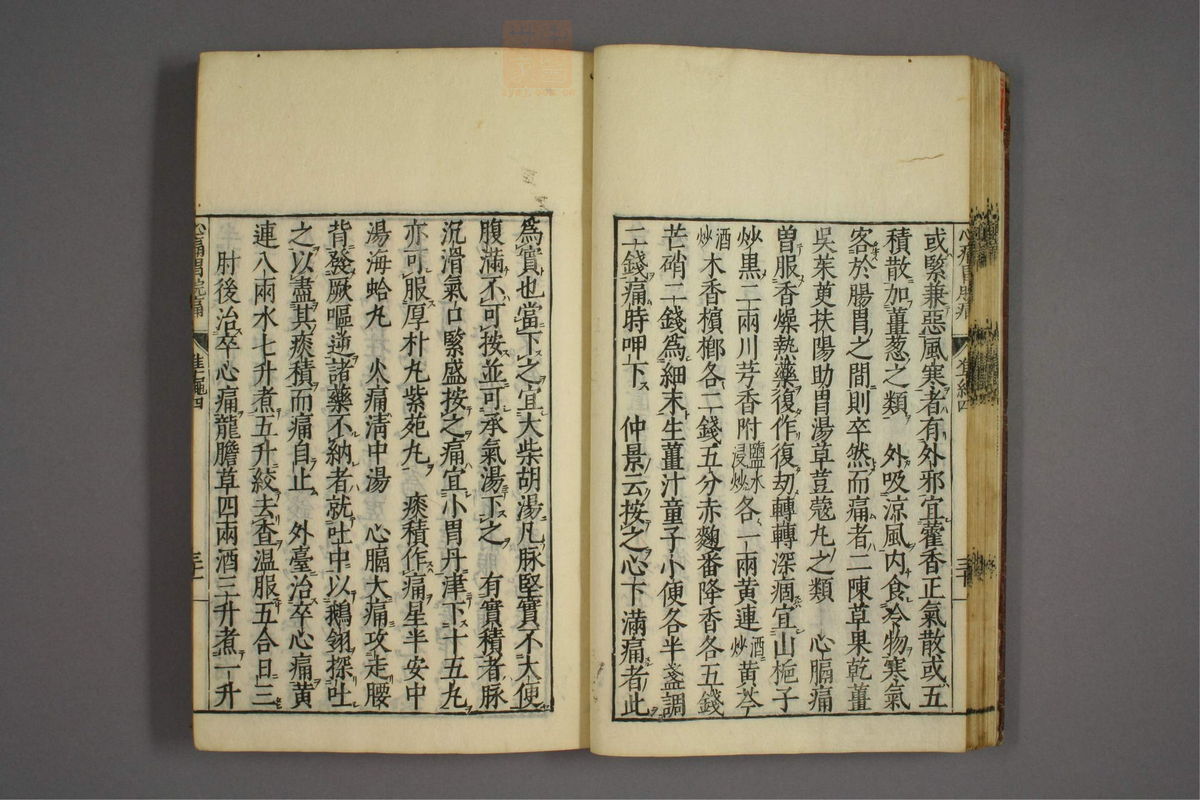 或緊兼惡風寒者有外邪宜藿香正氣散或五
積散加薑葱之類　外吸涼風内食冷物寒氣
客於腸胃之間則卒然而痛者二陳草果乾薑
吳茱萸扶陽助胃湯草荳蔻丸之類　心膈痛
曾服香燥熱藥復作復劫轉轉深痼宜山梔子
炒黑二兩川芎香附鹽水浸炒各一兩黃連酒炒黃芩
酒炒木香檳榔各二錢五分赤麴番降香各五錢
芒硝二錢爲細末生薑汁童子小便各半盞調
二錢痛時呷下　仲景云按之心下滿痛者此
爲實也當下之宜大柴胡湯凡脉堅實不大便
腹滿不可按並可承氣湯下之　有實積者脉
沉滑氣口緊盛按之痛宜小胃丹津下十五丸
亦可服厚朴丸紫苑丸　痰積作痛星半安中
湯海蛤丸　火痛清中湯　心膈大痛攻走腰
背發厥嘔逆諸藥不納者就吐中以鵝翎探吐
之以盡其痰積而痛自止　外臺治卒心痛黃
連八兩水七升煮五升絞去査溫服五合日三
肘後治卒心痛龍膽草四兩酒三升煮一升
心痛胃脘痛
準繩四
三十